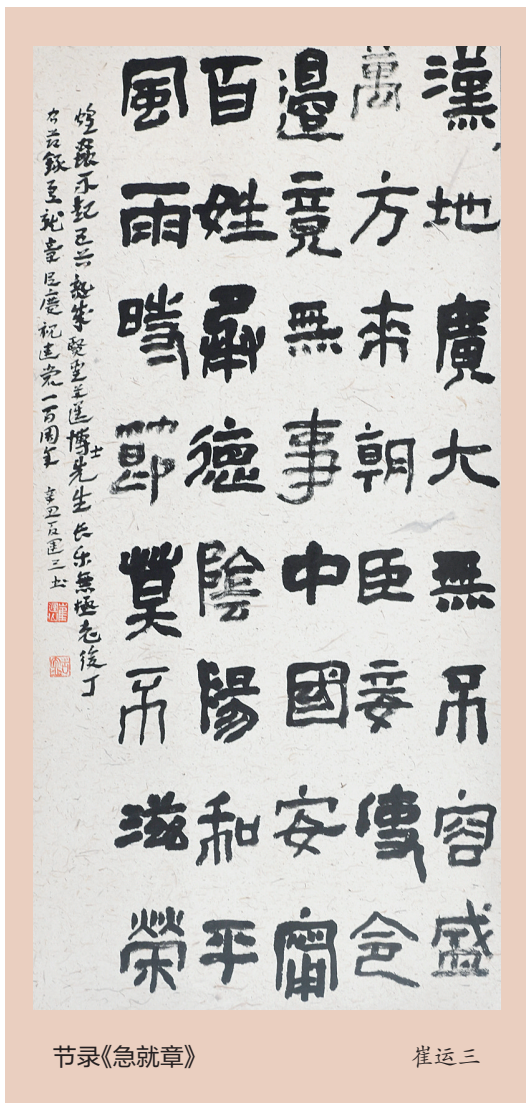 漢地廣大無不容盛
萬方來朝臣妾使令
邊竟無事中國安甯
百姓承德陰陽和平
風雨時節莫不滋榮
蝗蟲不起五谷孰成賢聖並進博士先生長乐無極老復丁
右节錄急就章以慶祝建党一百周年 辛丑夏運三书
节录《急就章》
崔运三